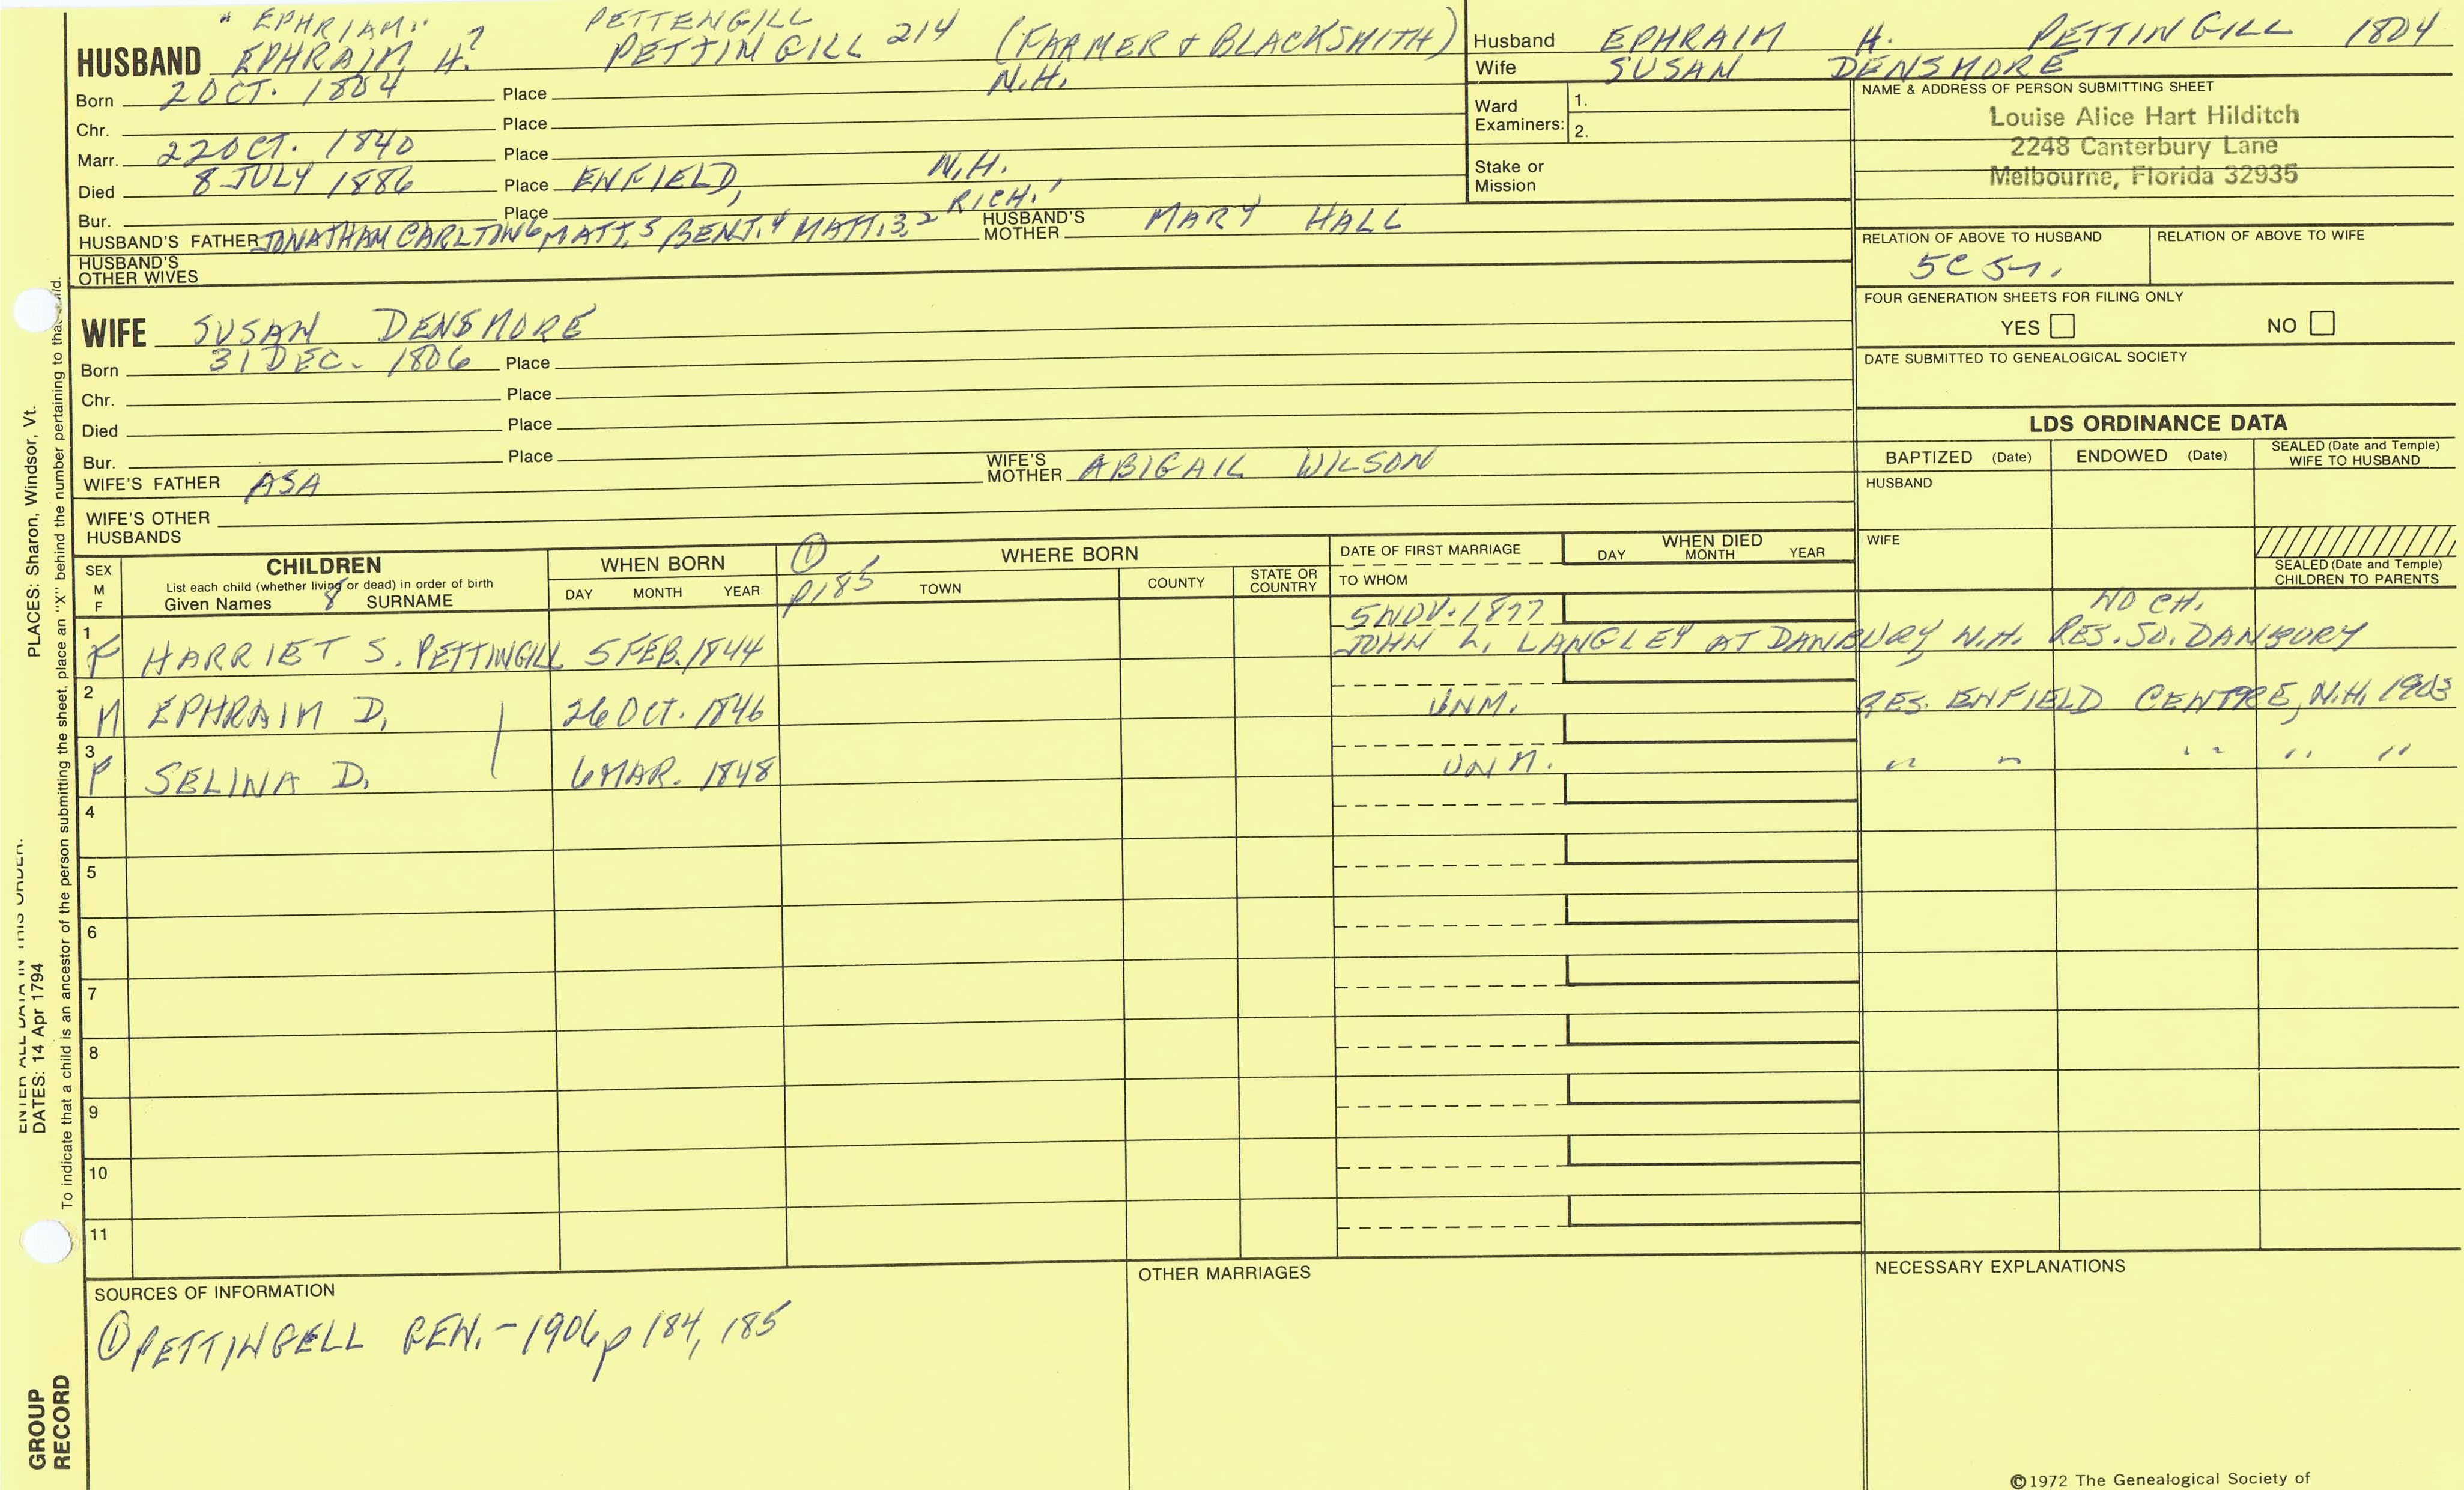 " EPHRIAM " PETTENGILL
HUSBAND EPHRAIM H? PETTINGILL 214 (FARMER & BLACKSMITH)
Born 2 OCT. 1804 Place N.H.
Chr. Place
Marr. 22 OCT. 1840 Place
Died 8 JULY 1886 Place ENFIELD, N.H.
Bur. Place
HUSBAND'S FATHER JONATHAN CARLTON 6 MATT. 5 BENJ. 4 MATT. 3, 2 RICH. 1 HUSBAND'S MOTHER MARY HALL
HUSBAND'S
OTHER WIVES
Husband EPHRAIM H. PETTINGILL 1804
Wife SUSAN DENSMORE
Ward
Examiners: 1.
2.
Stake or
Mission
NAME & ADDRESS OF PERSON SUBMITTING SHEET
Louise Alice Hart Hilditch
2248 Canterbury Lane
Melbourne, Florida 32935
RELATION OF ABOVE TO HUSBAND RELATION OF ABOVE TO WIFE
5C 5
FOUR GENERATION SHEETS FOR FILING ONLY
YES NO
DATE SUBMITTED TO GENEALOGICAL SOCIETY
WIFE SUSAN DENSMORE
Born 31 DEC. 1806 Place
Chr. Place
Died Place
Bur. Place
WIFE'S FATHER ASA WIFE'S MOTHER ABIGAIL WILSON
WIFE'S OTHER
HUSBANDS
LDS ORDINANCE DATA
BAPTIZED (Date) ENDOWED (Date) SEALED (Date and Temple)
WIFE TO HUSBAND
HUSBAND
WIFE
SEALED (Date and Temple)
CHILDREN TO PARENTS
SEX
M
F
CHILDREN
List each child (whether living or dead) in order of birth
Given Names 8 SURNAME
WHEN BORN
DAY MONTH YEAR
① WHERE BORN
p185 TOWN COUNTY STATE OR COUNTRY
DATE OF FIRST MARRIAGE
TO WHOM
WHEN DIED
DAY MONTH YEAR
5 NOV. 1877 NO CH.
1 F HARRIET S. PETTINGILL 5 FEB. 1844 JOHN L. LANGLEY AT DANBURY, N.H. RES. SO. DANBURY
2 M EPHRAIM D. 26 OCT. 1846 UNM. RES. ENFIELD CENTRE, N.H. 1903
3 F SELINA D. 6 MAR. 1848 UNM. " " " " "
4
5
6
7
8
9
10
11
SOURCES OF INFORMATION
① PETTINGELL GEN. - 1906 p 184, 185
OTHER MARRIAGES
NECESSARY EXPLANATIONS
©1972 The Genealogical Society of
PLACES: Sharon, Windsor, Vt.
ENTER ALL DATA IN THIS ORDER:
DATES: 14 Apr 1794
To indicate that a child is an ancestor of the person submitting the sheet, place an "X" behind the number pertaining to that child.
GROUP
RECORD